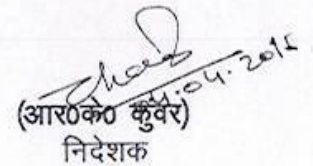 04.2015
(आर0के0 कुंवर)
निदेशक